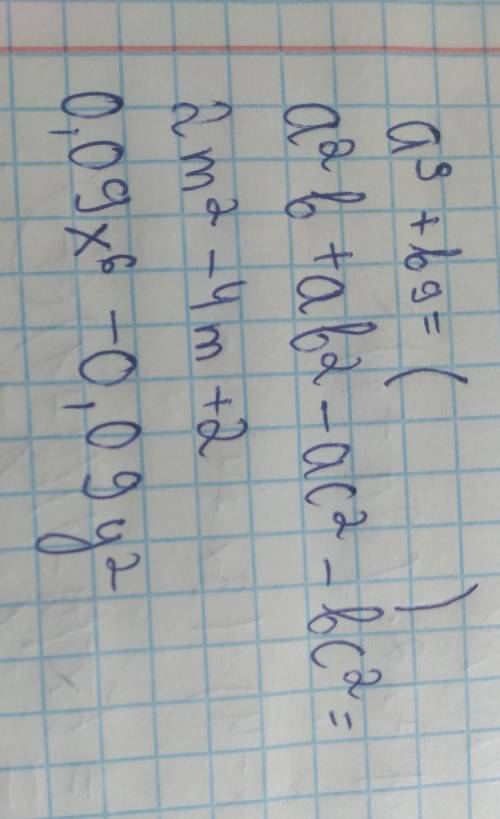 a⁹ + b⁹ = ( )
a²b + ab² - ac² - bc² =
2m² - 4m + 2
0,09x⁶ - 0,09y²